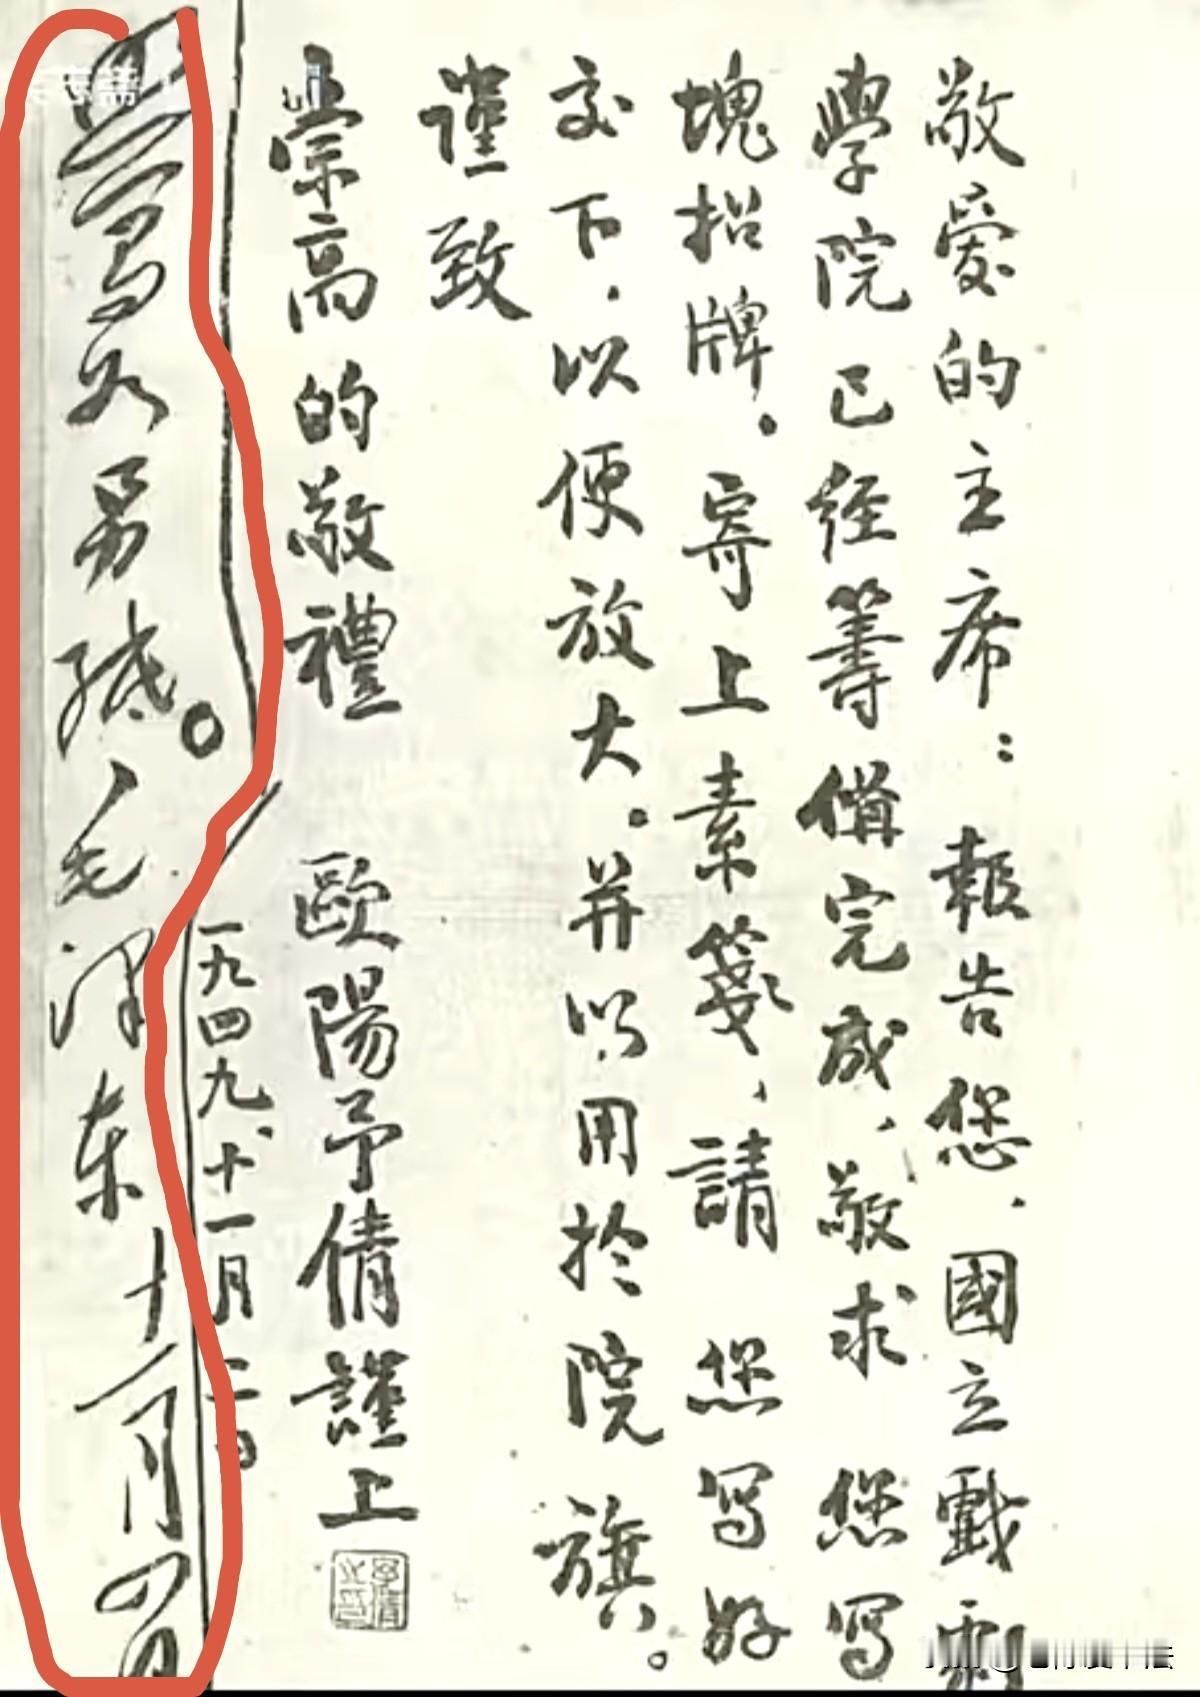 敬爱的主席：報告您、國立戲劇
學院已经籌備完成、敬求 您写
塊招牌。寄上素箋、請 您写好
交下．以便放大。并以用於院旗。
谨致
崇高的敬禮 歐陽予倩謹上
一九四九、十一月二日
写如另纸。
毛泽东 十一月四日